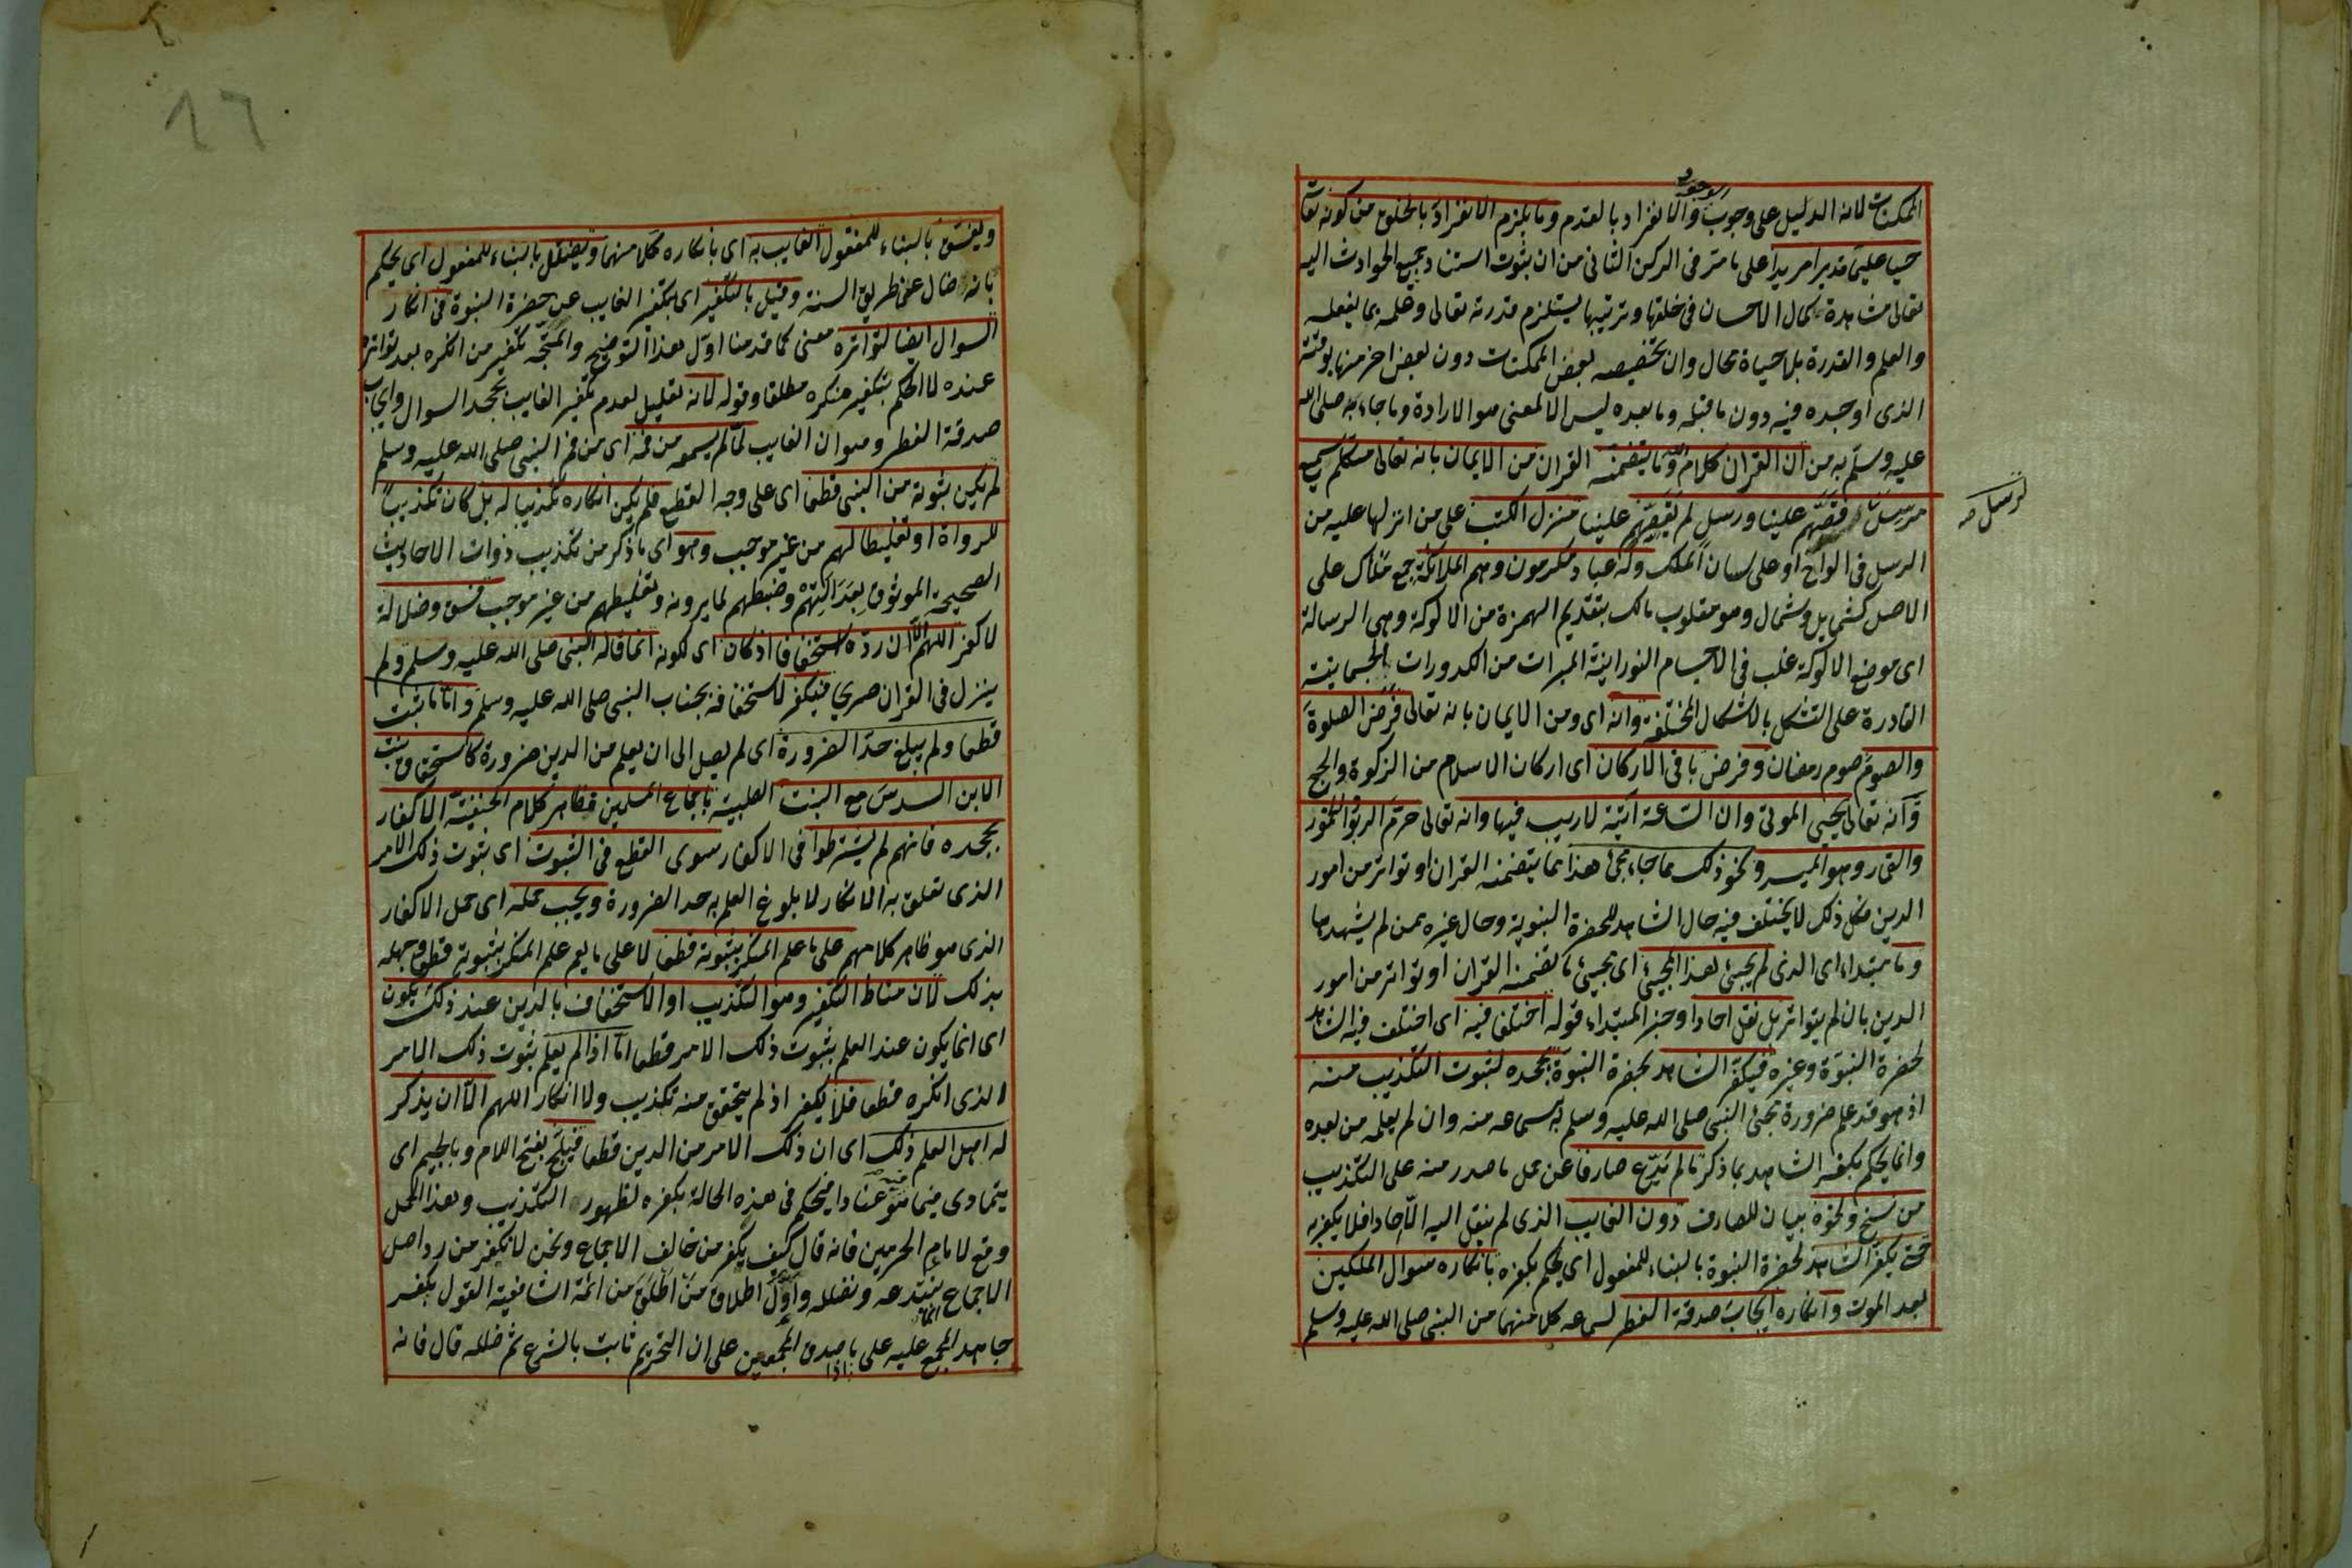 الممكنات لانه الدليل على وجوب الوجود والانفراد بالقدم وما يلزم الانفراد بالخلق من كونه تعالى
حيا عليما قديرا مريدا على ما مر فى الركن الثانى من ان ثبوت استناد جميع الحوادث اليه
تعالى مشاهدة كمال الاحسان فى خلقها وترتيبها يستلزم قدرته تعالى وعلمه بما يفعله
والعلم والقدرة بلا حياة محال وان تخصيصه بعض الممكنات دون بعض اخر منها بوقته
الذى اوجده فيه دون ما قبله وما بعده ليس الا لمعنى هو الارادة وما جاء به صلى الله
عليه وسلم به من ان القران كلام الله وما يتضمنه القران من الايمان بانه تعالى متكلم سميع
مرسل لرسل قصهم علينا ورسل لم يقصهم علينا منزل الكتب على من انزلها عليه من
الرسل فى الواح او على لسان الملك وله عباد مكرمون وهم الملائكة جمع ملاك على
الاصل كشمايل وشمال وهو مقلوب مالك بتقديم الهمزة من الالوكة وهى الرسالة
اى موضع الالوكة غلب فى الاجسام النورانية المبرات من الكدورات الجسمانية
القادرة على التشكل بالاشكال المختلفة وانه اى ومن الايمان بانه تعالى فرض الصلوة
والصوم صوم رمضان وفرض باقى الاركان اى اركان الاسلام من الزكوة والحج
وانه تعالى يحيى الموتى وان الساعة اتية لا ريب فيها وانه تعالى حرم الربوا والخمور
والقمار وهو الميسر ونحو ذلك مما جاء مجئ هذا مما يتضمنه القران او تواتر من امور
الدين فكل ذلك لا يختلف فيه حال الشاهد للحضرة النبوية وحال غيره ممن لم يشهدها
وما مبتداء اى الذى لم يجيئ هذا المجيئ اى مجيئ ما تضمنه القران او تواتر من امور
الدين بان لم يتواتر بل نقل احادا وخبر المبتداء قوله اختلفا فيه اى اختلف فيه الشاهد
لحضرة النبوة وغيره فيكفر الشاهد لحضرة النبوة بجحده لثبوت التكذيب منه
اذ هو قد علم ضرورة مجئ النبى صلى الله عليه وسلم به بسماعه منه وان لم يعلمه من بعده
وانما يحكم بكفر الشاهد بما ذكر ما لم يدع صارفا عن حمل ما صدر منه على التكذيب
من نسخ ونحوه بيان للصارف دون الغايب الذى لم ينقل اليه الا احادا فلا يكفر به
حتى يكفر الشاهد لحضرة النبوة بالبناء للمفعول اى يحكم بكفره بانكاره سوال الملكين
بعد الموت وانكاره ايجاب صدقة الفطر لسماعه كلا منهما من النبى صلى الله عليه وسلم
لرسل صح
١٦
ويفسق بالبناء للمفعول الغايب به اى بانكاره كلا منهما ويضلل بالبناء للمفعول اى يحكم
بانه ضال عن طريق السنة وقيل بالتكفير اى بكفر الغايب عن حضرة النبوة فى انكار
السوال ايضا لتواتره معنى كما قدمنا اول هذا التوضيح والمتجه تكفير من انكره بعد تواتره
عنده لا الحكم بتكفير منكره مطلقا وقوله لانه تعليل لعدم تكفير الغايب بجحد السوال وايجاب
صدقة الفطر وهو ان الغايب لما لم يسمعه من فمه اى من فم النبى صلى الله عليه وسلم
لم يكن ثبوته من النبى قطعا اى على وجه القطع فلم يكن انكاره تكذيبا له بل كان تكذيبا
للرواة او تغليطا لهم من غير موجب وهو اى ما ذكر من تكذيب ذوات الاحاديث
الصحيحة الموثوق بعدالتهم وضبطهم لما يروونه وتغليطهم من غير موجب فسق وضلالة
لا كفر اللهم الا ان رده استخفافا اذ كان اى لكونه انما قاله النبى صلى الله عليه وسلم ولم
ينزل فى القران صريحا فيكفر لاستخفافه بجناب النبى صلى الله عليه وسلم واما ما ثبت
قطعا ولم يبلغ حد الضرورة اى لم يصل الى ان يعلم من الدين ضرورة كاستحقاق بنت
الابن السدس مع البنت الصلبية باجماع المسلمين فظاهر كلام الحنفية الاكفار
بجحده فانهم لم يشترطوا فى الاكفار سوى القطع فى الثبوت اى ثبوت ذلك الامر
الذى تعلق به الانكار لا بلوغ العلم به حد الضرورة ويجب حمله اى حمل الاكفار
الذى هو ظاهر كلامهم على ما علم المنكر ثبوته قطعا لا على ما يعم علم المنكر بثبوته قطعا وجهله
بذلك لان مناط التكفير وهو التكذيب او الاستخفاف بالدين عند ذلك يكون
اى انما يكون عند العلم بثبوت ذلك الامر قطعا اما اذا لم يعلم ثبوت ذلك الامر
الذى انكره قطعا فلا يكفر اذ لم يتحقق منه تكذيب ولا انكار اللهم الا ان يذكر
له اهل العلم ذلك اى ان ذلك الامر من الدين قطعا فيلج بفتح اللام وبالجيم اى
يتمادى فيما هو فيه عنادا فيحكم فى هذه الحالة بكفره لظهور التكذيب وهذا الحمل
وقع لامام الحرمين فانه قال كيف يكفر من خالف الاجماع ونحن لا نكفر من رد اصل
الاجماع انما نبتدعه ونضلله واول اطلاق من اطلق من ائمة الشافعية القول بكفر
جاحد المجمع عليه على ما اذا صدق المجمعين على ان التحريم ثابت بالشرع ثم حلله قال فانه